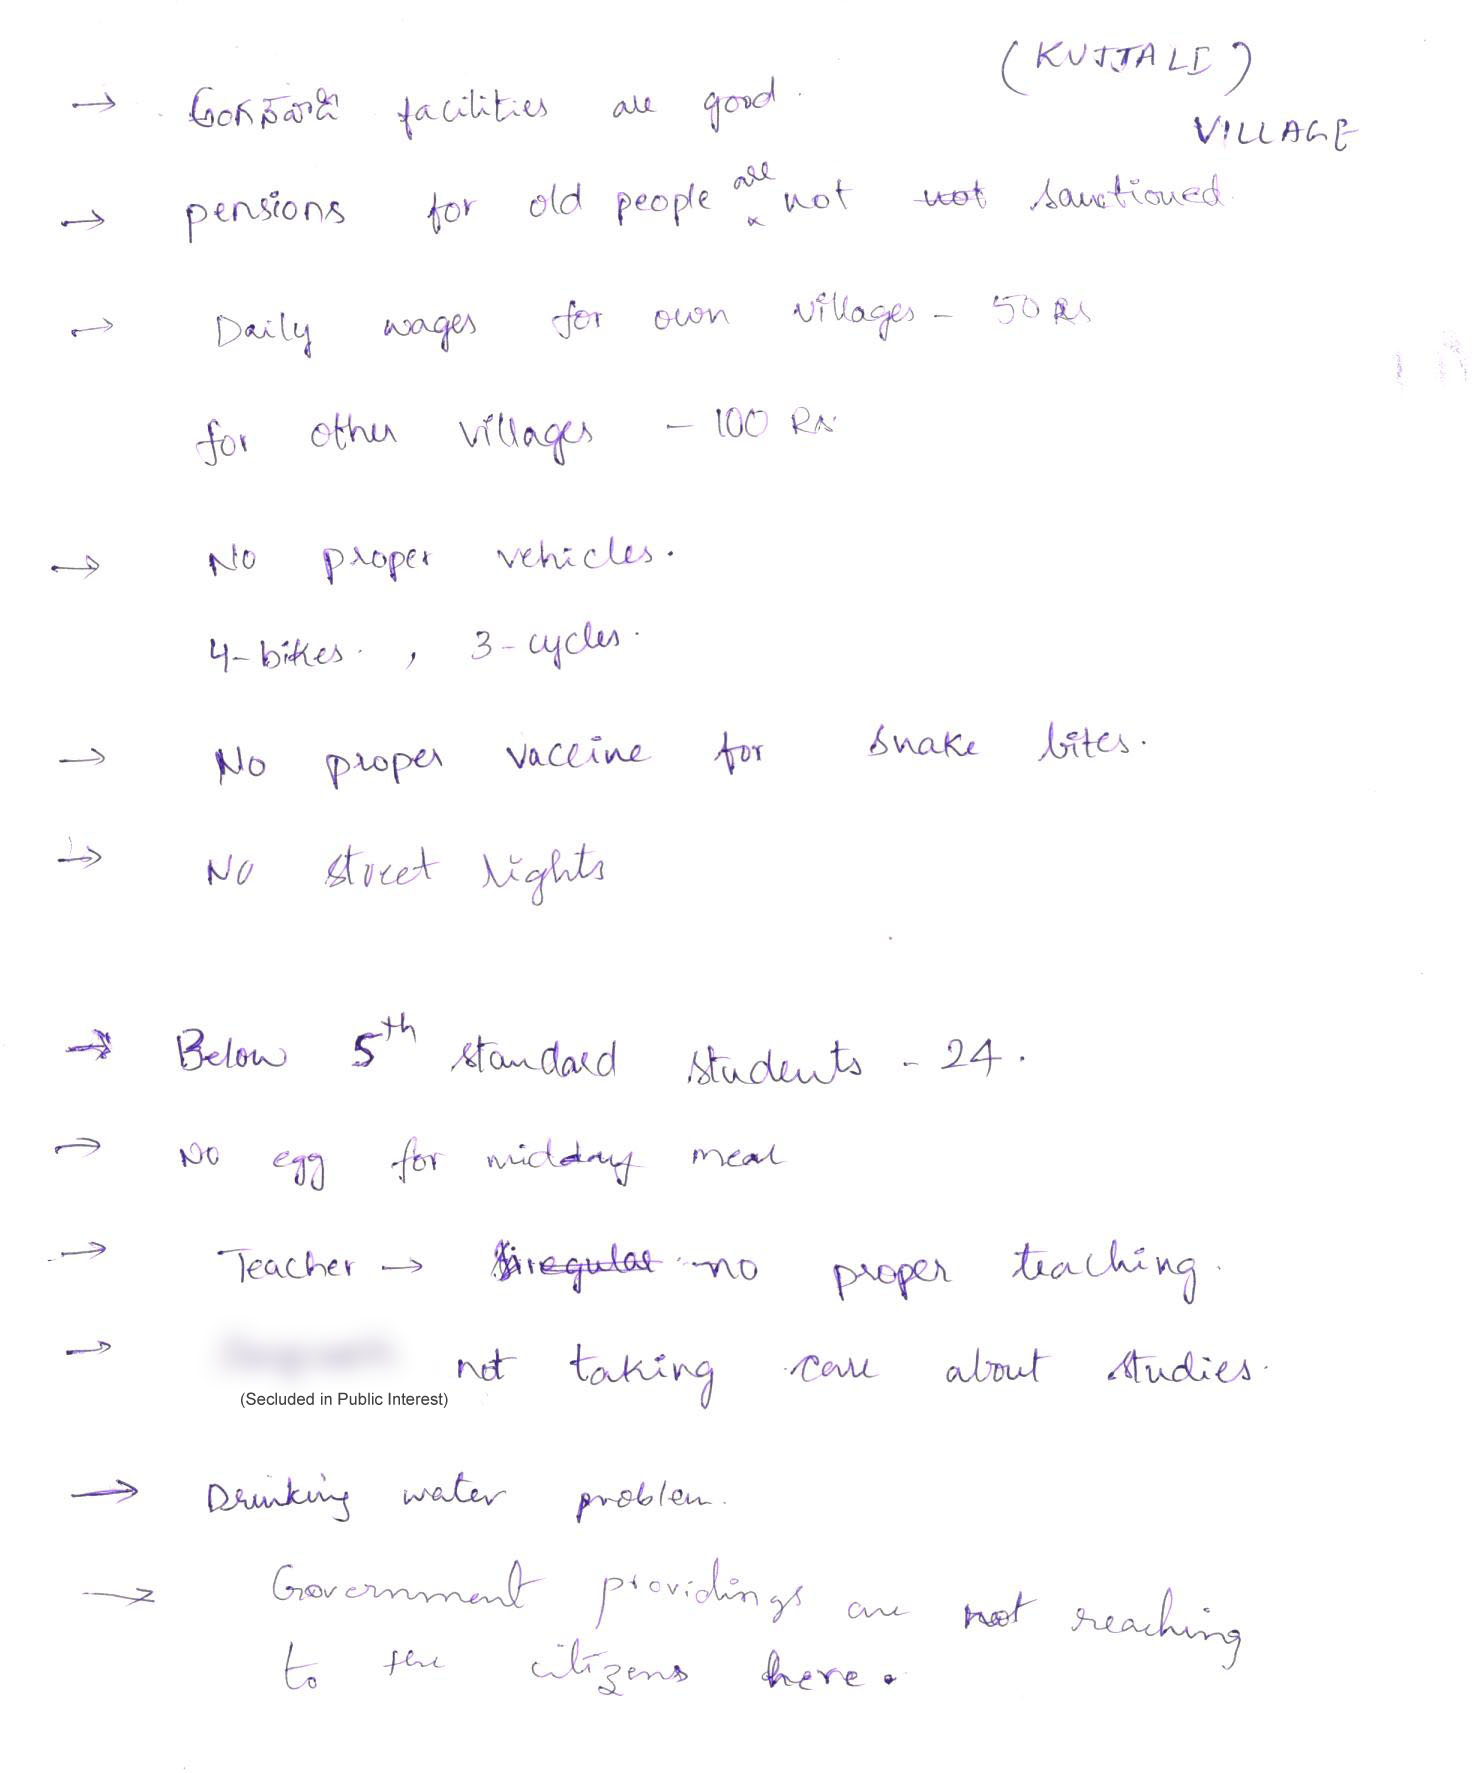 (KUJJALI)
VILLAGE
→ అంగన్‌వాడి facilities are good.
→ pensions for old people are not not sanctioned.
→ Daily wages for own villages - 50 Rs
for other villages - 100 Rs.
→ No proper vehicles.
4-bikes. , 3-cycles.
→ No proper vaccine for snake bites.
→ No street lights
→ Below 5th standard students - 24.
→ No egg for midday meal
→ Teacher → irregular no proper teaching.
→ not taking care about studies.
(Secluded in Public Interest)
→ Drinking water problem.
→ Government providings are not reaching
to the citizens here.